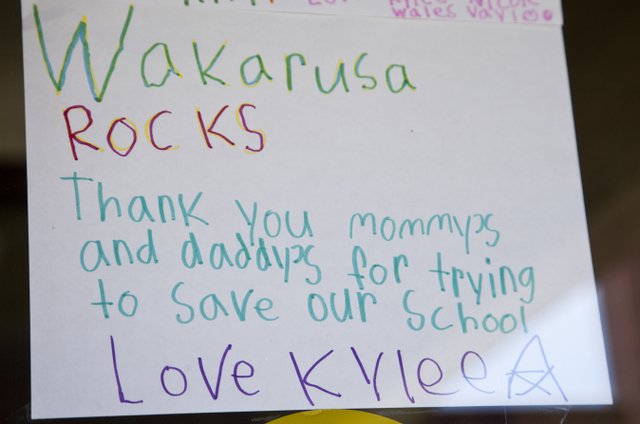 wales vavi
Wakarusa
ROCKS
Thank you mommys
and daddys for trying
to save our school
Love Kylee